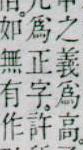 中之義為高
凡為正字許
如無有作